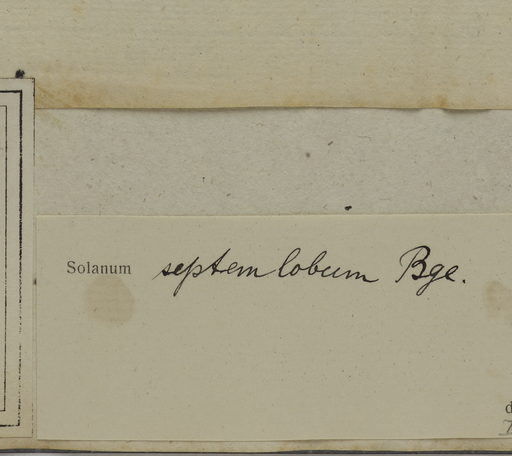 Solanum septemlobum Bge.
d